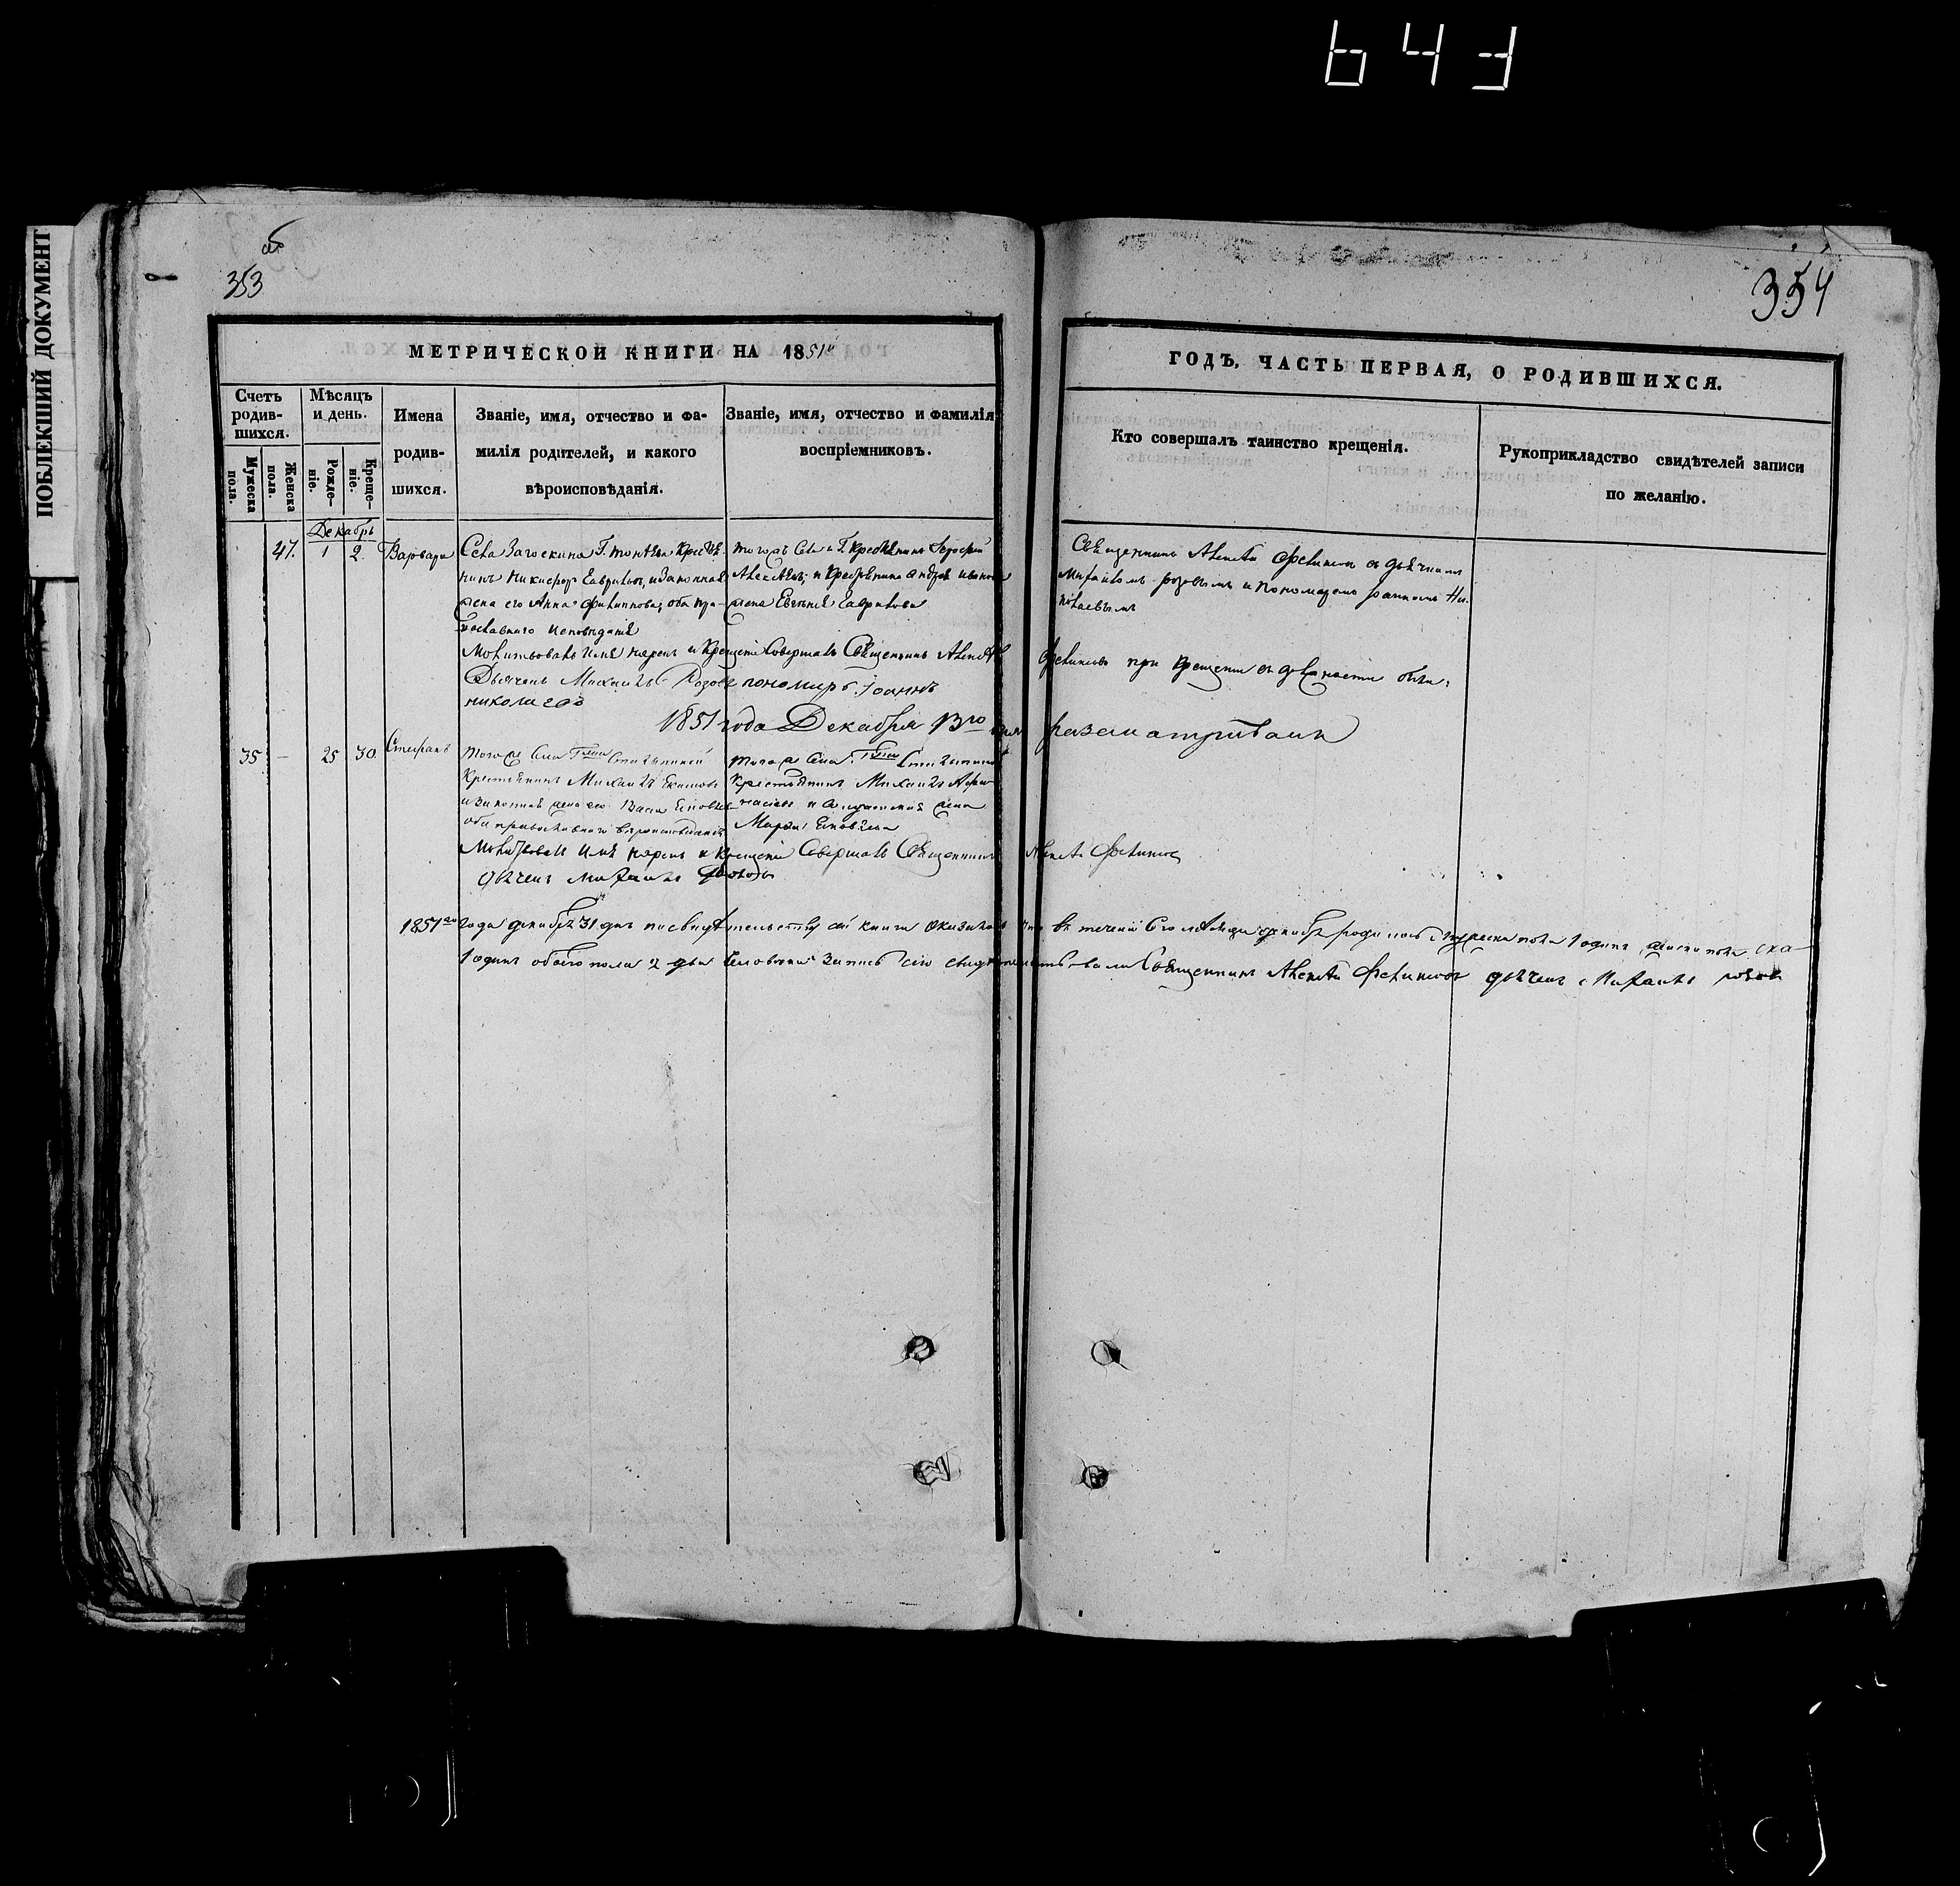 643
ПОБЛЕКШИЙ ДОКУМЕНТ
об
353
354
МЕТРИЧЕСКОЙ КНИГИ НА 1851й
ГОДЪ, ЧАСТЬ ПЕРВАЯ, О РОДИВШИХСЯ.
Счетъ родив-шихся.
Мужеска пола.
Женска пола.
Мѣсяцъ и день.
Рожде-ніе.
Креще-ніе.
Имена родив-шихся.
Званіе, имя, отчество и фа-
милія родителей, и какого
вѣроисповѣданія.
Званіе, имя, отчество и фамилія
воспріемниковъ.
Кто совершалъ таинство крещенія.
Рукоприкладство свидѣтелей записи
по желанію.
Декабрь
47. 1 2. Варвара
Села Загоскина Г.
нинъ Никифор Гавриловъ, и законная
жена его Анна Филиппова, оба пра-
вославнаго исповѣданія
тогожъ села Г. крестьянинъ
Алексѣевъ, и крестьянина Андрея Иванова
жена Евгенія Гаврилова
Священникъ Алексѣй Филиповъ съ дьячкомъ
Михаиломъ Розовымъ и пономаремъ Іоанномъ Ни-
колаевымъ
Молитвовалъ имя нарекъ и крещеніе совершалъ Священникъ Алексѣй Филиповъ при крещеніи въ дѣйности были:
Дьячокъ Михаилъ Розовъ пономарь Іоаннъ
Николаевъ
1851 года Декабря 13го дня разсматривали
35 — 25 30 Стефанъ
Тогожъ села
Крестьянинъ Михаилъ
и законная жена его Васа
оба православнаго вѣроисповѣданія
Тогожъ села
Крестьянинъ Михаилъ Афо-
насьевъ и солдатская жена
Марья
Молитвовалъ имя нарекъ и крещеніе совершалъ Священникъ Алексѣй Филиповъ
дьячекъ Михаилъ Розовъ
1851го года декабря 31 дня по свидѣтельству сей книги оказалось что въ теченіи сего мѣсяца декабря родилось мужеска пола 1 одинъ, женска пола
1 одинъ обоего пола 2 два человѣка запись сію свидѣтельствовали Священникъ Алексѣй Филиповъ дьячекъ Михаилъ Розовъ